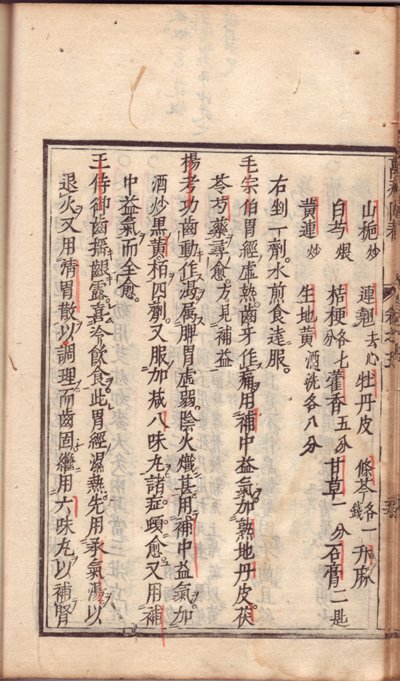 山梔炒 連翹去心 牡丹皮 條芩各一錢 升麻
白芍煨 桔梗各七分 藿香五分 甘草一分 石膏二匙
黃連炒 生地黃酒洗各八分
右剉一劑。水煎食遠服。
毛宗伯胃經虛熱。齒牙作痛用補中益氣加熟地丹皮茯
苓芍藥尋愈。方見補益
楊考功齒動作渴。属脾胃虛弱。陰火熾甚用補中益氣加
酒炒黑黃栢四劑。又服加減八味丸諸症頓愈又用補
中益氣而全愈。
王侍御齒搖齦露。喜冷飲食此胃經濕熱。先用承氣湯以
退火又用清胃散以調理而齒固繼用六味丸以補腎